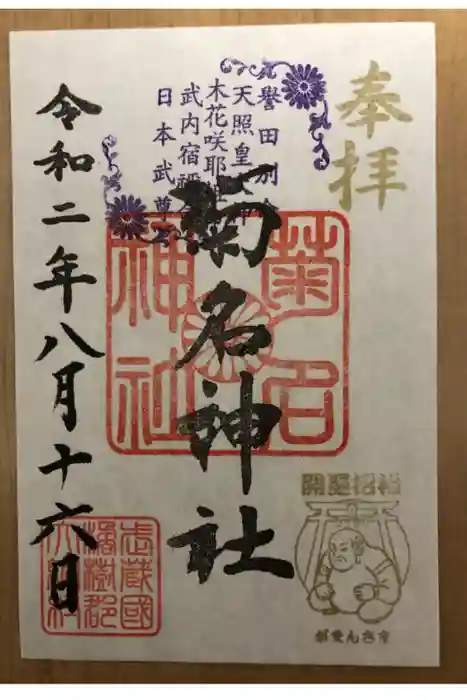 奉拝
誉田別命
天照皇大神
木花咲耶姫命
武内宿禰命
日本武尊
菊名神社
菊名神社
令和二年八月十六日
開運招福
がまんさま
武蔵國
橘樹郡